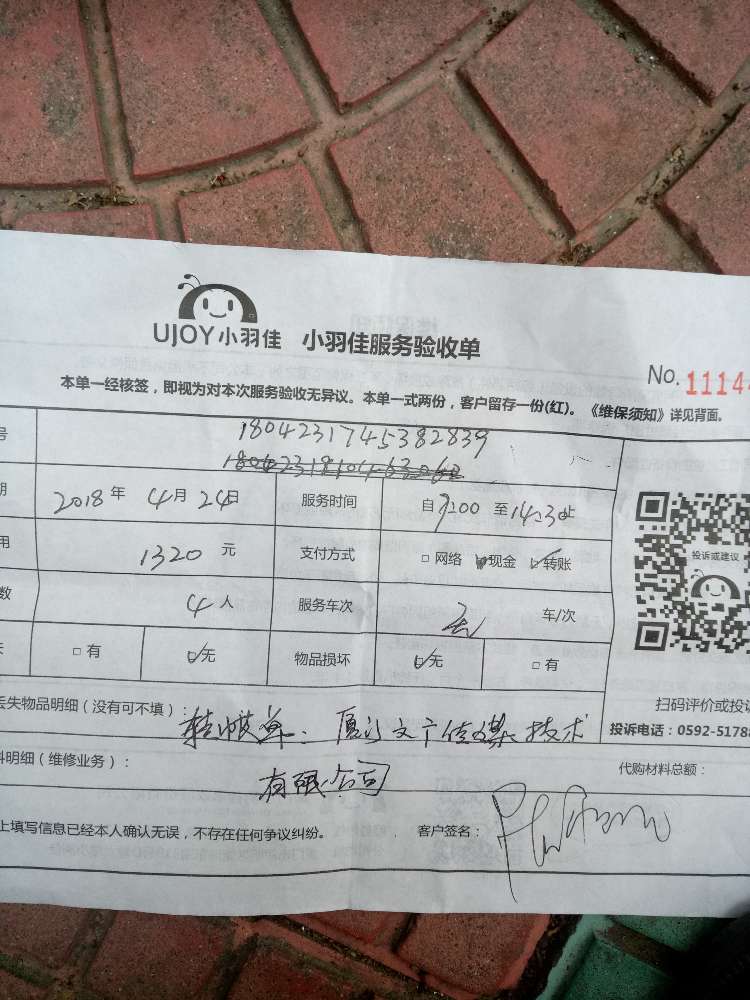 UJOY小羽佳 小羽佳服务验收单
No. 1114
本单一经核签，即视为对本次服务验收无异议。本单一式两份，客户留存一份(红)。《维保须知》详见背面。
号 1804231745382839
期 2018年 4月24日 服务时间 自9:00至14:30止
用 1320 元 支付方式 □网络 现金 转账
投诉或建议
数 4人 服务车次 车/次
失 □有 ☑无 物品损坏 ☑无 □有
扫码评价或投诉
丢失物品明细（没有可不填）： 转账单：厦门文广传媒技术
投诉电话：0592-5178
有限公司
料明细（维修业务）： 代购材料总额：
上填写信息已经本人确认无误，不存在任何争议纠纷。 客户签名：